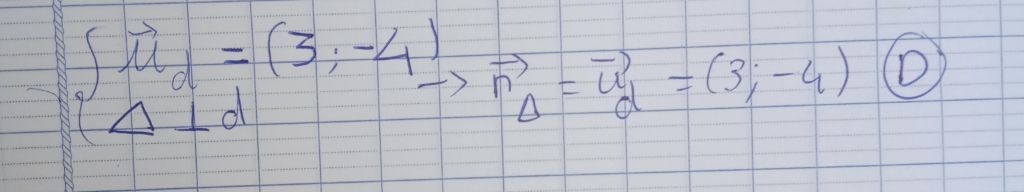 { u⃗_d = (3; -4)
Δ ⊥ d → n⃗_Δ = u⃗_d = (3; -4) Ⓓ